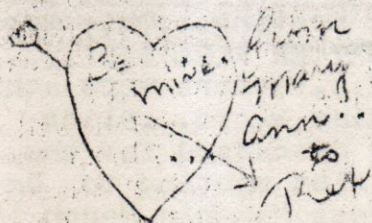 Be
mine.
...
from
Mary
Ann!!
to